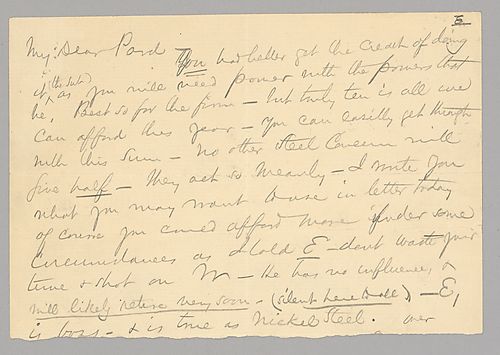 5
My Dear Pard You had better get the credit of doing
it, (the sub) as you will need power with the powers that
be, Best so for the firm – but truly ten is all we
can afford this year – you can easily get through
with this sum – no other Steel Concern will
give half – they act so meanly – I write you
what you may want to use in letter today
of course you could afford more under some
Circumstances as I told E – dont waste your
time & shot on W – He has no influence, &
will likely retire very soon – (silent here & all) – E,
is boss – & is true as Nickel Steel. over